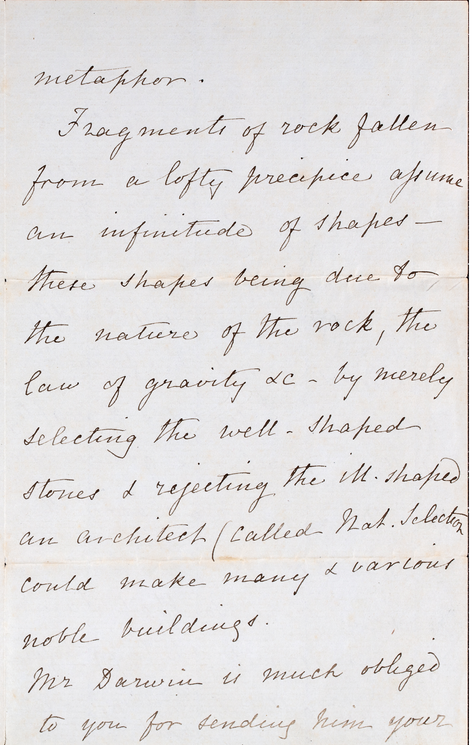 metaphor.
Fragments of rock fallen
from a lofty precipice assume
an infinitude of shapes—
these shapes being due to
the nature of the rock, the
law of gravity &c - by merely
selecting the well-shaped
stones & rejecting the ill-shaped
an architect (called Nat. Selection
could make many & various
noble buildings.
Mr Darwin is much obliged
to you for sending him your